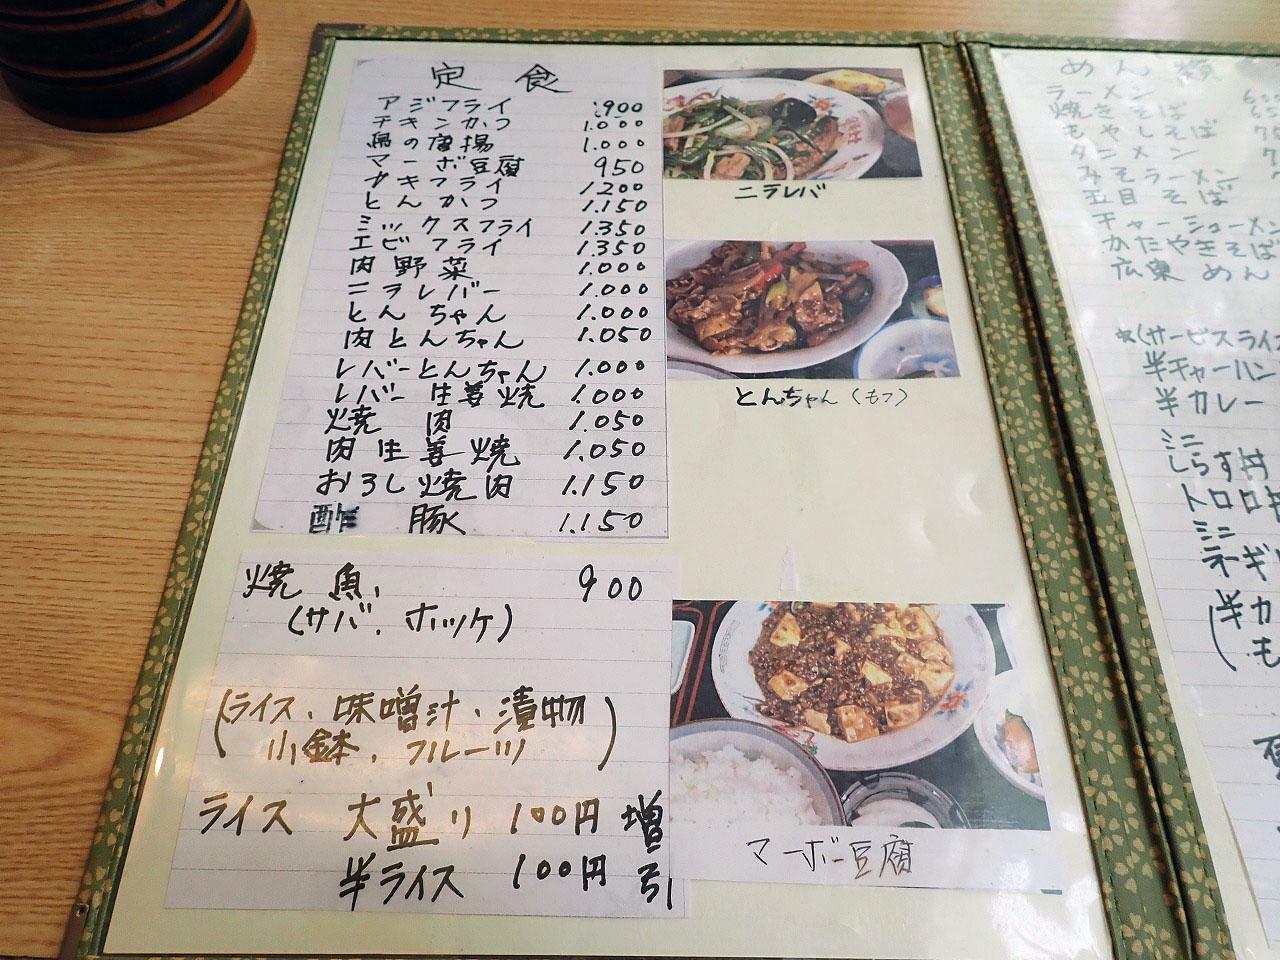 定食
アジフライ 900
チキンかつ 1.000
鳥の唐揚 1.000
マーボ豆腐 950
カキフライ 1200
とんかつ 1.150
ミックスフライ 1.350
エビフライ 1.350
肉野菜 1.000
ニラレバー 1.000
とんちゃん 1.000
肉とんちゃん 1.050
レバーとんちゃん 1.000
レバー生姜焼 1.000
焼肉 1.050
肉生姜焼 1.050
おろし焼肉 1.150
酢豚 1.150
焼魚 900
(サバ、ホッケ)
(ライス、味噌汁、漬物
小鉢、フルーツ)
ライス 大盛り 100円 増
半ライス 100円 引
ニラレバ
とんちゃん(もつ)
マーボー豆腐
めん類
ラーメン
焼きそば
もやしそば
タンメン
みそラーメン
五目そば
チャーシューメン
かたやきそば
広東めん
*(サービスライス
半チャーハン
半カレー
ミニ
しらす丼
トロロ
ミニ
(半カ